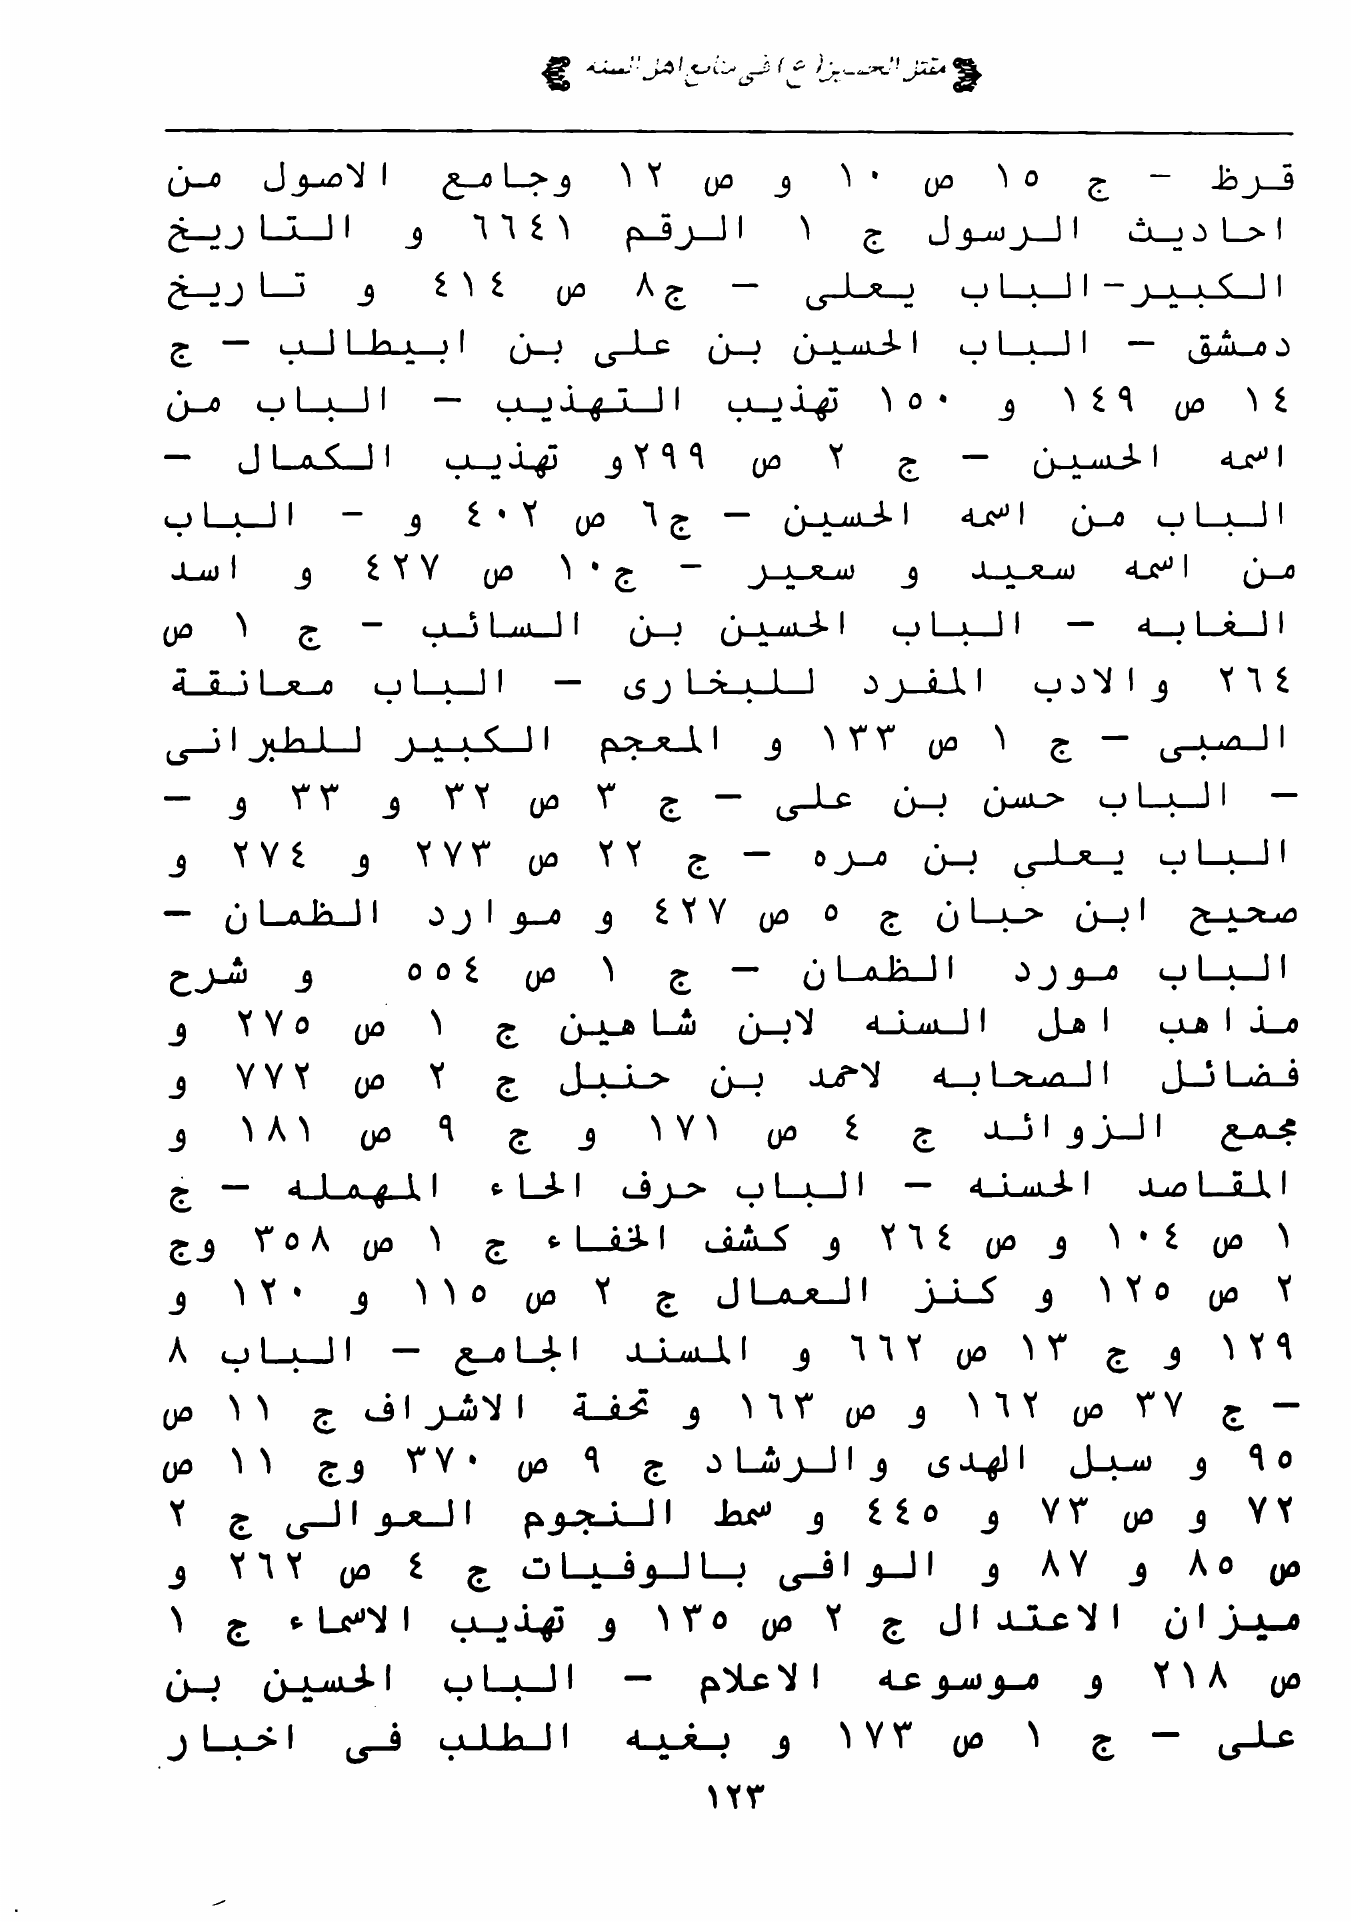 مقتل الحسين (ع) فی منابع اهل السنه
قرظ - ج ١٥ ص ١٠ و ص ١٢ وجامع الاصول من
احاديث الرسول ج ١ الرقم ٦٦٤١ و التاريخ
الكبير-الباب يعلى - ج٨ ص ٤١٤ و تاريخ
دمشق - الباب الحسين بن على بن ابيطالب - ج
١٤ ص ١٤٩ و ١٥٠ تهذيب التهذيب - الباب من
اسمه الحسين - ج ٢ ص ٢٩٩و تهذيب الكمال -
الباب من اسمه الحسين - ج٦ ص ٤٠٢ و - الباب
من اسمه سعيد و سعير - ج١٠ ص ٤٢٧ و اسد
الغابه - الباب الحسين بن السائب - ج ١ ص
٢٦٤ والادب المفرد للبخارى - الباب معانقة
الصبى - ج ١ ص ١٣٣ و المعجم الكبير للطبرانى
- الباب حسن بن على - ج ٣ ص ٣٢ و ٣٣ و -
الباب يعلى بن مره - ج ٢٢ ص ٢٧٣ و ٢٧٤ و
صحيح ابن حبان ج ٥ ص ٤٢٧ و موارد الظمان -
الباب مورد الظمان - ج ١ ص ٥٥٤ و شرح
مذاهب اهل السنه لابن شاهين ج ١ ص ٢٧٥ و
فضائل الصحابه لاحمد بن حنبل ج ٢ ص ٧٧٢ و
مجمع الزوائد ج ٤ ص ١٧١ و ج ٩ ص ١٨١ و
المقاصد الحسنه - الباب حرف الحاء المهمله - ج
١ ص ١٠٤ و ص ٢٦٤ و كشف الخفاء ج ١ ص ٣٥٨ وج
٢ ص ١٢٥ و كنز العمال ج ٢ ص ١١٥ و ١٢٠ و
١٢٩ و ج ١٣ ص ٦٦٢ و المسند الجامع - الباب ٨
- ج ٣٧ ص ١٦٢ و ص ١٦٣ و تحفة الاشراف ج ١١ ص
٩٥ و سبل الهدى والرشاد ج ٩ ص ٣٧٠ وج ١١ ص
٧٢ و ص ٧٣ و ٤٤٥ و سمط النجوم العوالى ج ٢
ص ٨٥ و ٨٧ و الوافى بالوفيات ج ٤ ص ٢٦٢ و
ميزان الاعتدال ج ٢ ص ١٣٥ و تهذيب الاسماء ج ١
ص ٢١٨ و موسوعه الاعلام - الباب الحسين بن
على - ج ١ ص ١٧٣ و بغيه الطلب فى اخبار
١٢٣